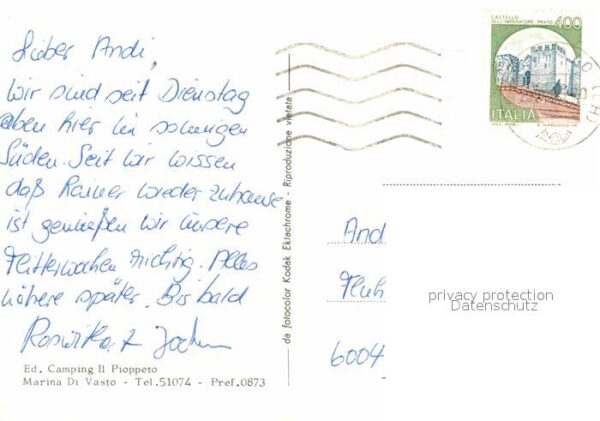 Lieber Andi,
wir sind seit Dienstag
eben hier im sonnigen
Süden. Seit wir wissen
daß Rainer wieder zuhause
ist genießen wir unsere
Flitterwochen richtig. Alles
nähere später. Bis bald
Roswitha & Jochen
Ed. Camping Il Pioppeto
Marina Di Vasto - Tel. 51074 - Pref. 0873
da fotocolor Kodak Ektachrome - Riproduzione vietata
CASTELLO
DELL'IMPERATORE - PRATO
400
ITALIA
And
6004
privacy protection
Datenschutz